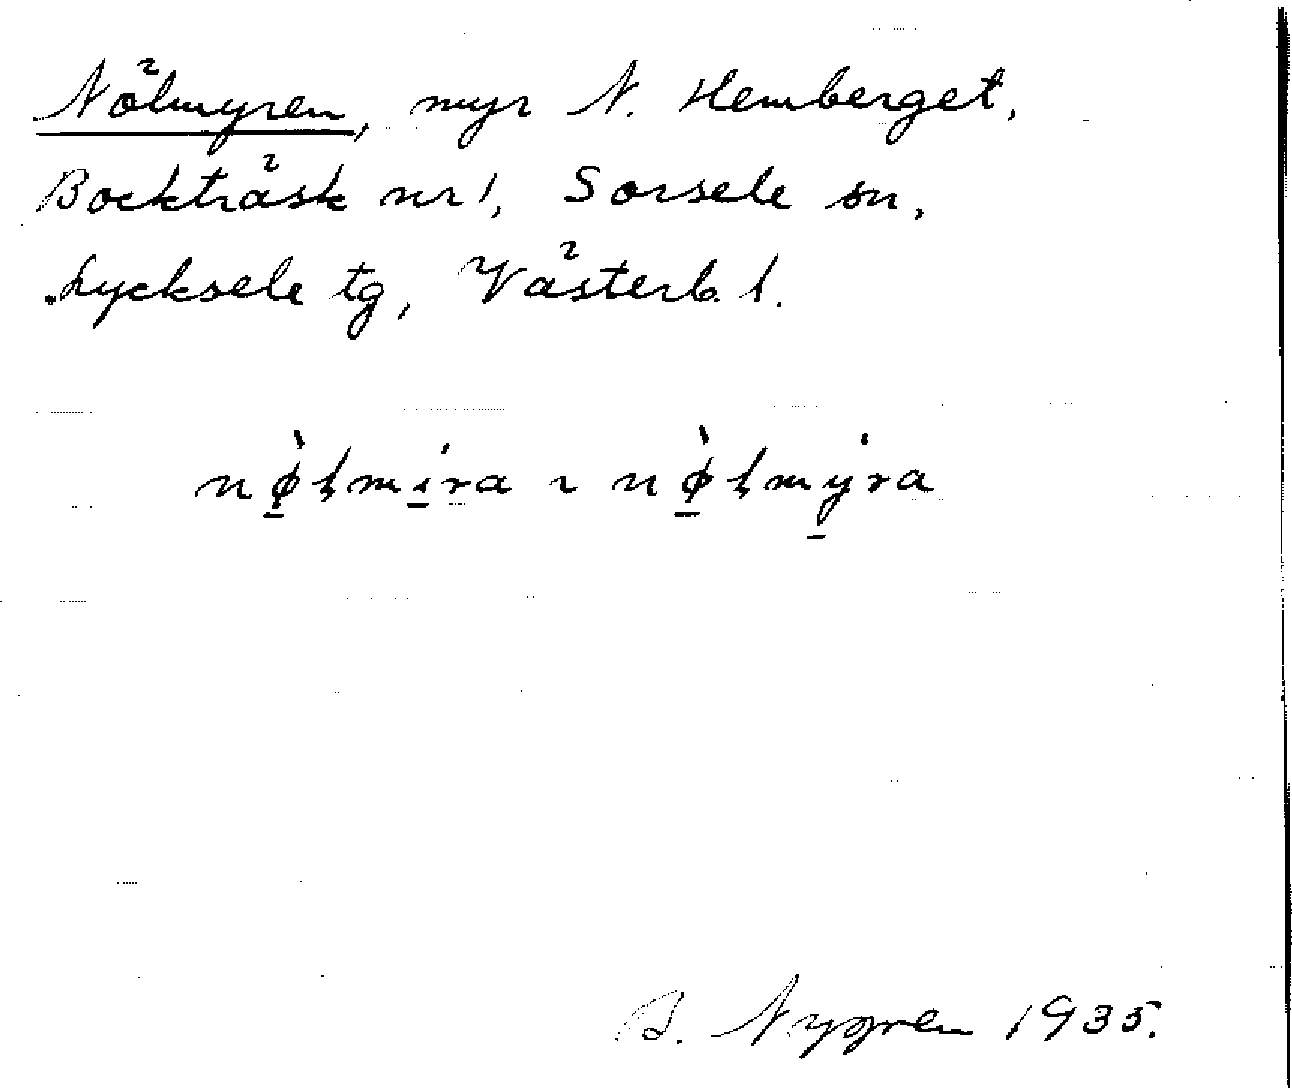 Nölmyren, myr N. Hemberget,
Bockträsk nr 1, Sorsele sn,
Lycksele tg, Västerb. l.
nø̠̀lmi̠ra ı nø̠̀lmy̠ra
B. Nygren 1935.